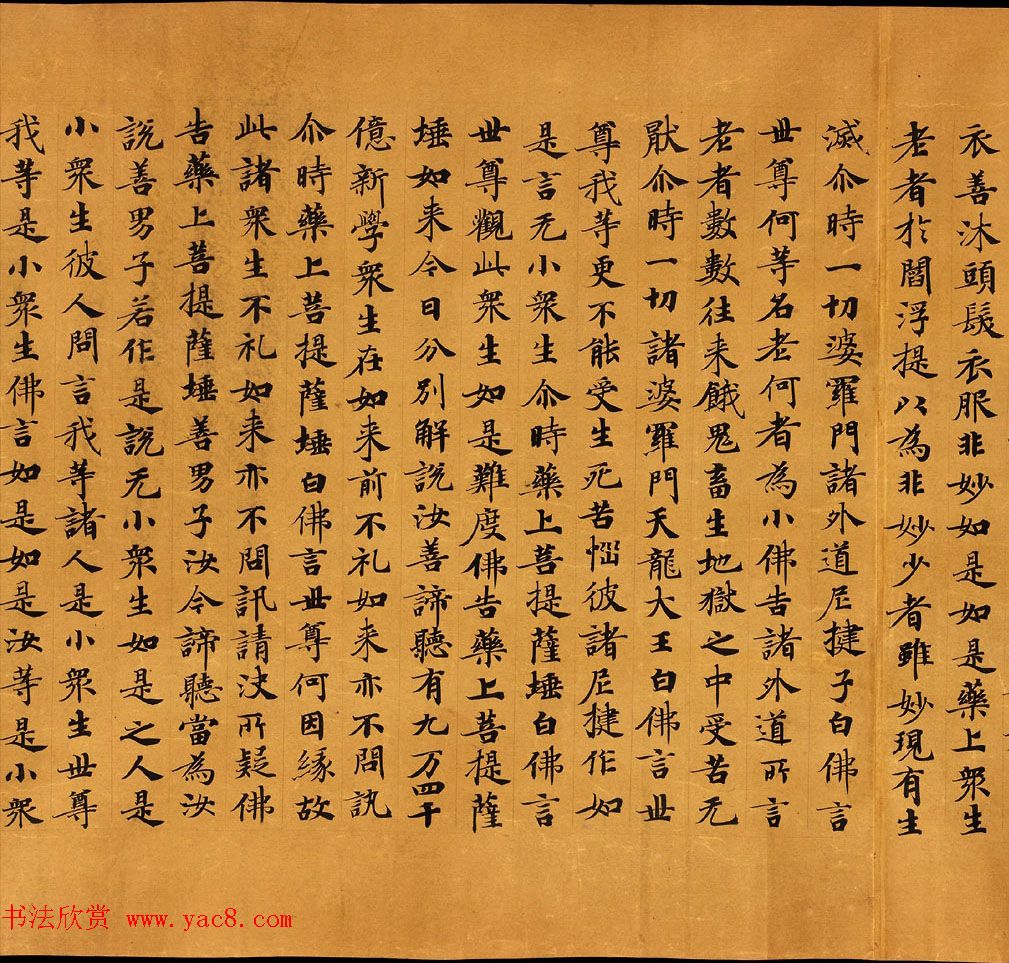 衣善沐頭髮衣服非妙如是如是藥上衆生
老者於閻浮提以為非妙少者雖妙現有生
滅尒時一切婆羅門諸外道尼揵子白佛言
世尊何等名老何者為小佛告諸外道所言
老者數數往来餓鬼畜生地獄之中受苦无
猒尒時一切諸婆羅門天龍大王白佛言世
尊我等更不能受生死苦惱彼諸尼揵作如
是言无小衆生尒時藥上菩提薩埵白佛言
世尊觀此衆生如是難度佛告藥上菩提薩
埵如来今日分別解說汝善諦聽有九万四千
億新學衆生在如来前不礼如来亦不問訊
尒時藥上菩提薩埵白佛言世尊何因緣故
此諸衆生不礼如来亦不問訊請決所疑佛
告藥上菩提薩埵善男子汝今諦聽當為汝
說善男子若作是說无小衆生如是之人是
小衆生彼人問言我等諸人是小衆生世尊
我等是小衆生佛言如是如是汝等是小衆
书法欣赏 www.yac8.com